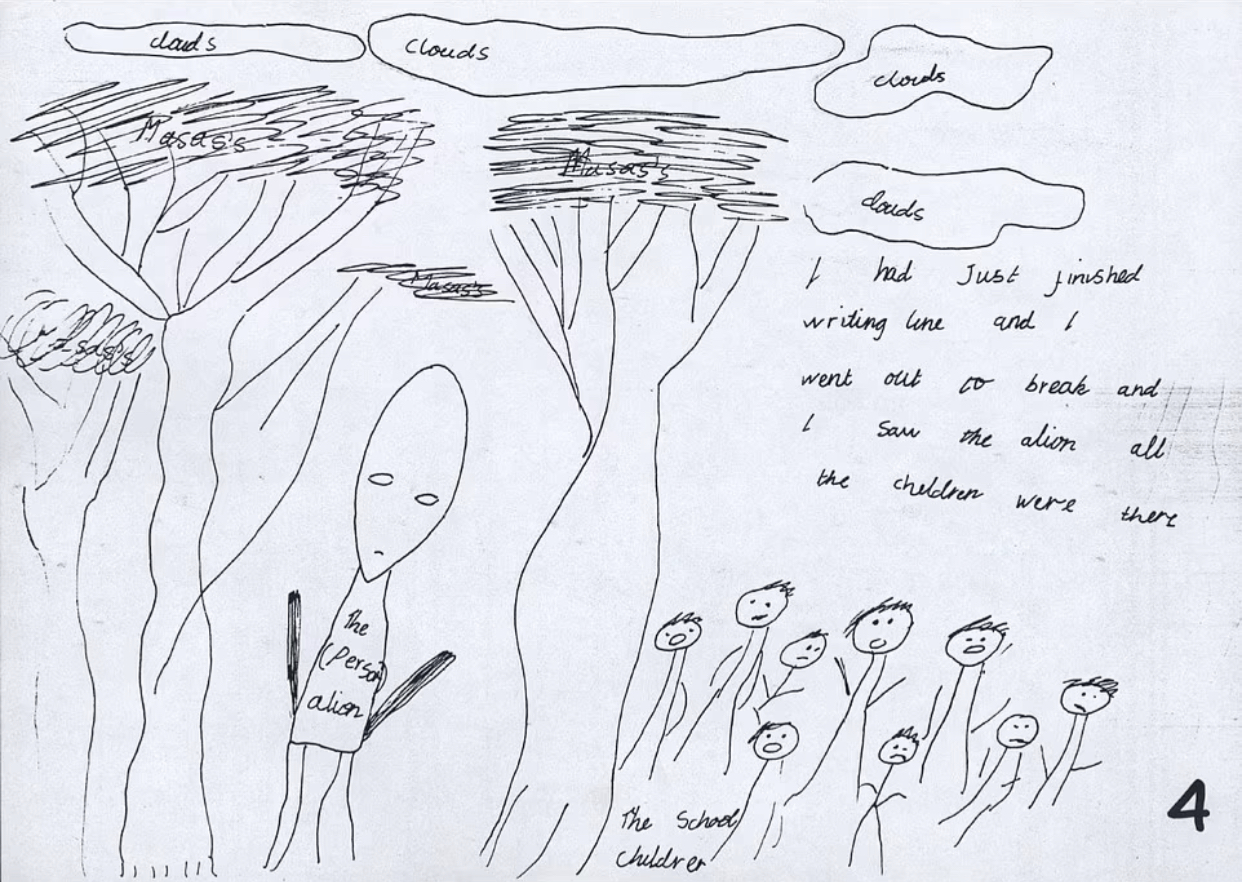 clouds
clouds
clouds
Masasis
Masasis
clouds
Masasis
I had Just finished
writing line and I
went out to break and
I saw the alion all
the children were there
The
(Person)
alion
The School
Children
4